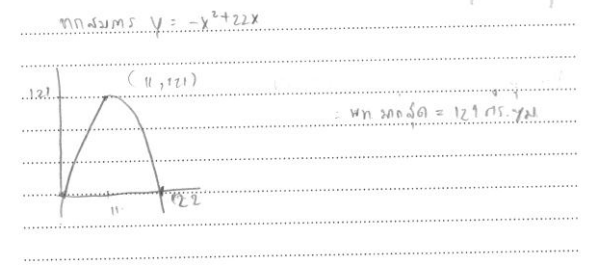 จากสมการ y = -x²+22x
(11,121)
121
∴ พท มากสุด = 121 ตร.หน่วย
11
22